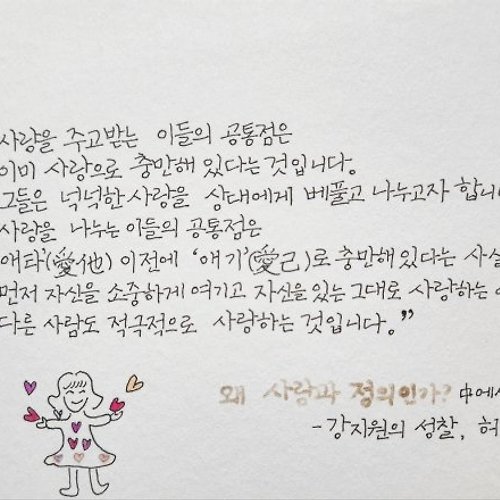 사랑을 주고받는 이들의 공통점은
이미 사랑으로 충만해 있다는 것입니다.
그들은 넉넉한 사랑을 상대에게 베풀고 나누고자 합니
사랑을 나누는 이들의 공통점은
애타'(愛他) 이전에 '애기'(愛己)로 충만해 있다는 사실
먼저 자신을 소중하게 여기고 자신을 있는 그대로 사랑하는
다른 사람도 적극적으로 사랑하는 것입니다."
왜 사랑과 정의인가? 中에서
-강지원의 성찰, 허